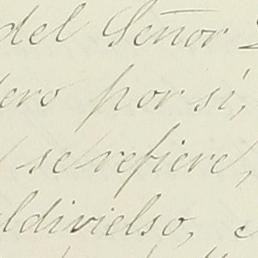 del Señor
ero por si,
se refiere,
ldivielso,